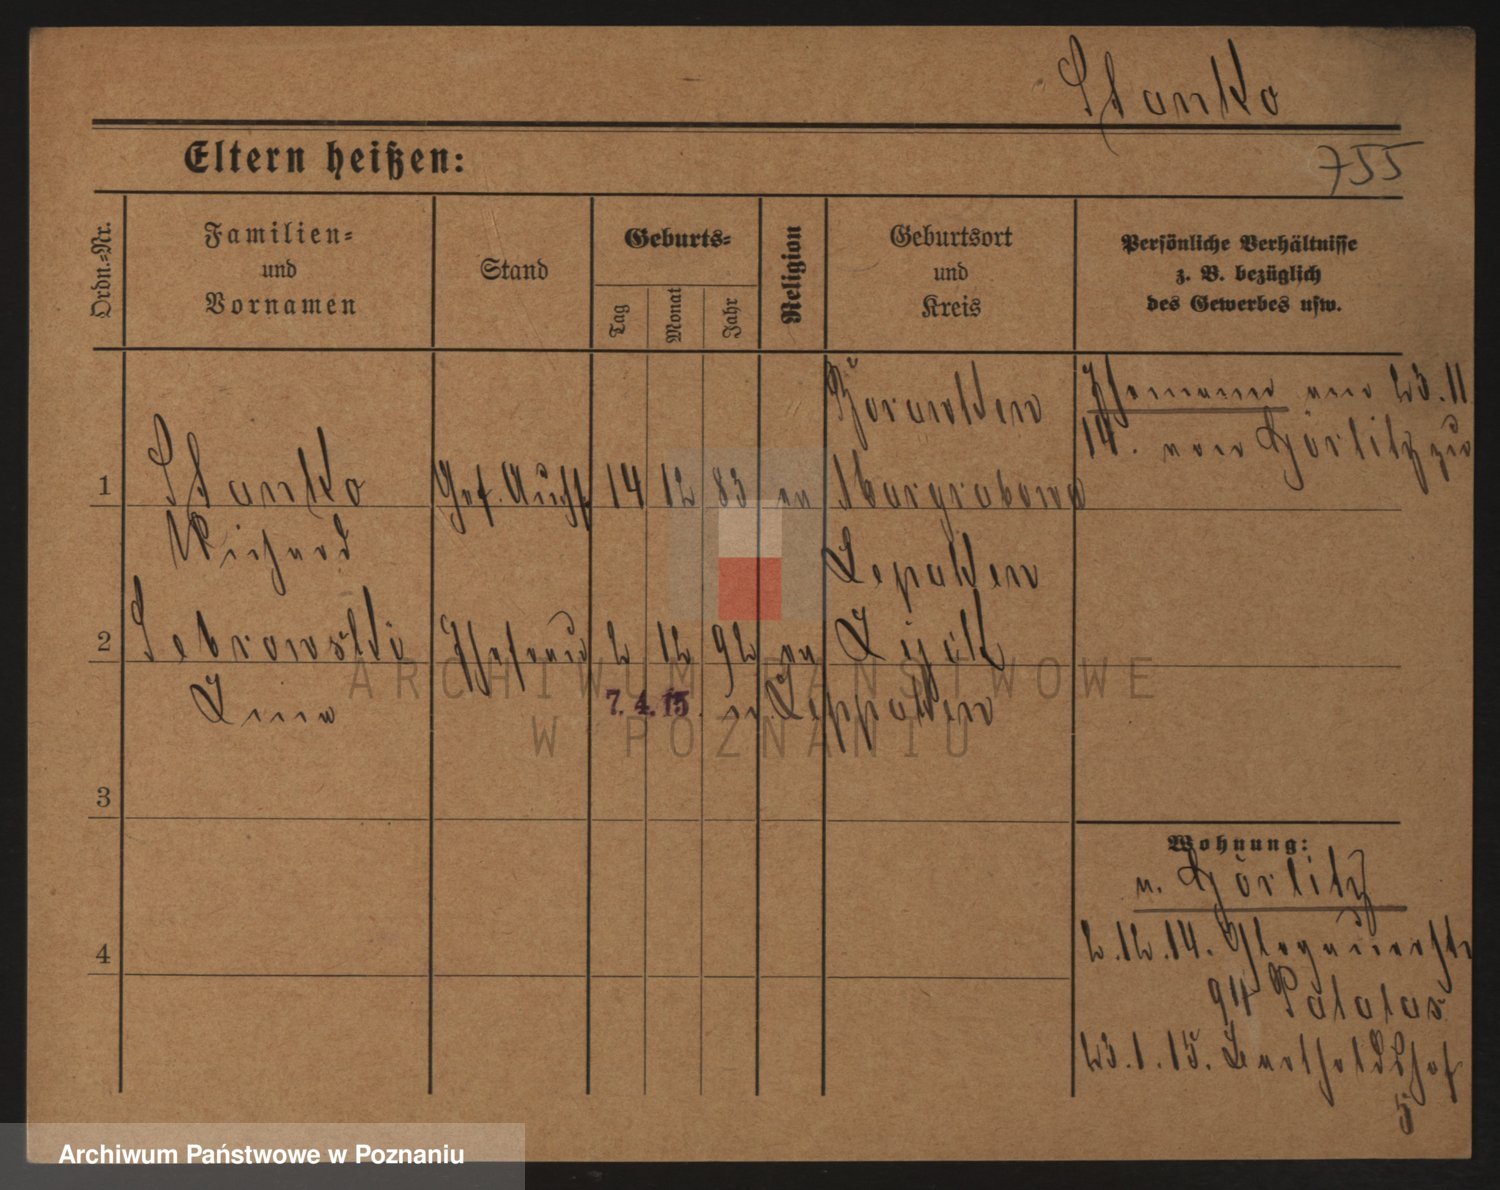 Stanko
755
Eltern heißen:
Ordn.-Nr.
Familien-
und
Vornamen
Stand
Geburts-
Tag
Monat
Jahr
Religion
Geburtsort
und
Kreis
Persönliche Verhältnisse
z. B. bezüglich
des Gewerbes usw.
Ehemann am 23.11.
14. von Görlitz zu
1 Stanko Gef. Aufs. 14 12 83 ev Margrabowa
Richard
Lepakken
2 Sebrowski Ehefrau 2 12 92 ev Lyck
Lina 7.4.15. n. Leppakken
3
4
Wohnung:
n. Görlitz
2.12.14. Glogauerstr
94
23.1.15. Bertholdshof
5
ARCHIWUM PAŃSTWOWE
W POZNANIU
Archiwum Państwowe w Poznaniu